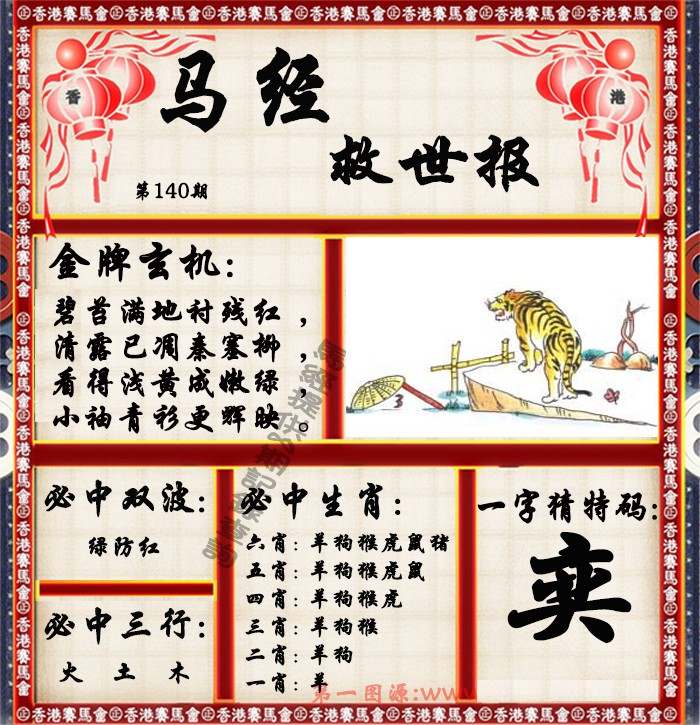 香港賽馬會
香 港
马经
救世报
第140期
金牌玄机：
碧苔满地衬残红，
清露已凋秦塞柳，
看得浅黄成嫩绿，
小袖青衫更辉映。
必中双波：
绿防红
必中三行：
火 土 木
必中生肖：
六肖：羊狗猴虎鼠猪
五肖：羊狗猴虎鼠
四肖：羊狗猴虎
三肖：羊狗猴
二肖：羊狗
一肖：羊
一字猜特码：
奕
第一图源:www